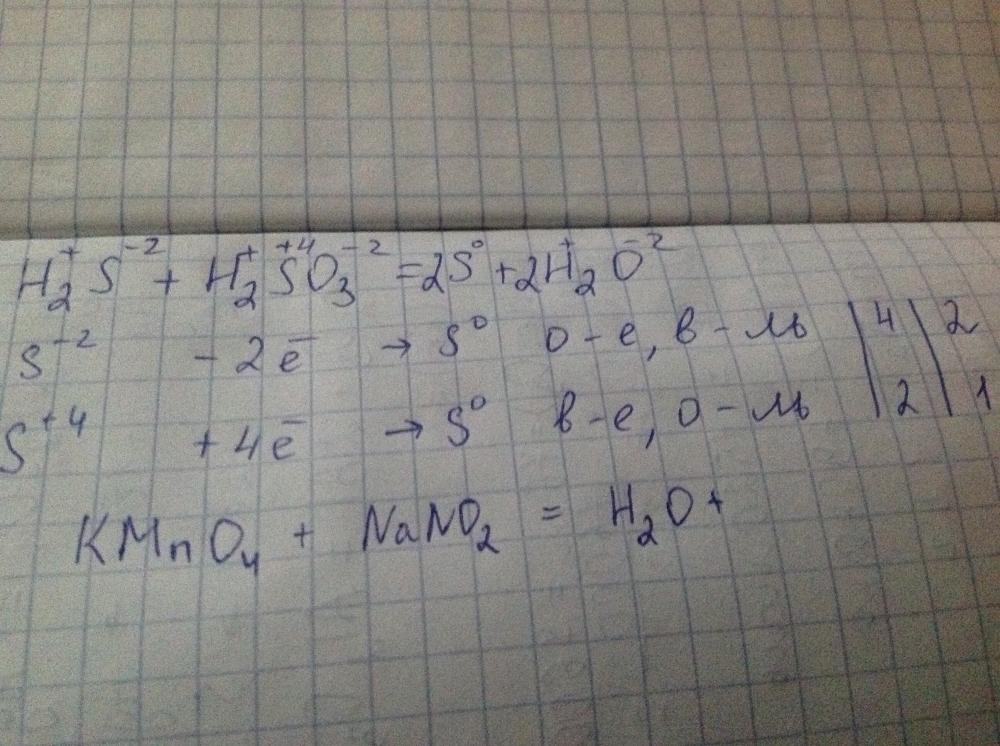 H₂⁺S⁻² + H₂⁺S⁺⁴O₃⁻² = 2S⁰ + 2H₂⁺O⁻²
S⁻² - 2e̅ → S⁰ о-е, в-ль | 4 | 2
S⁺⁴ + 4e̅ → S⁰ в-е, о-ль | 2 | 1
KMnO₄ + NaNO₂ = H₂O +